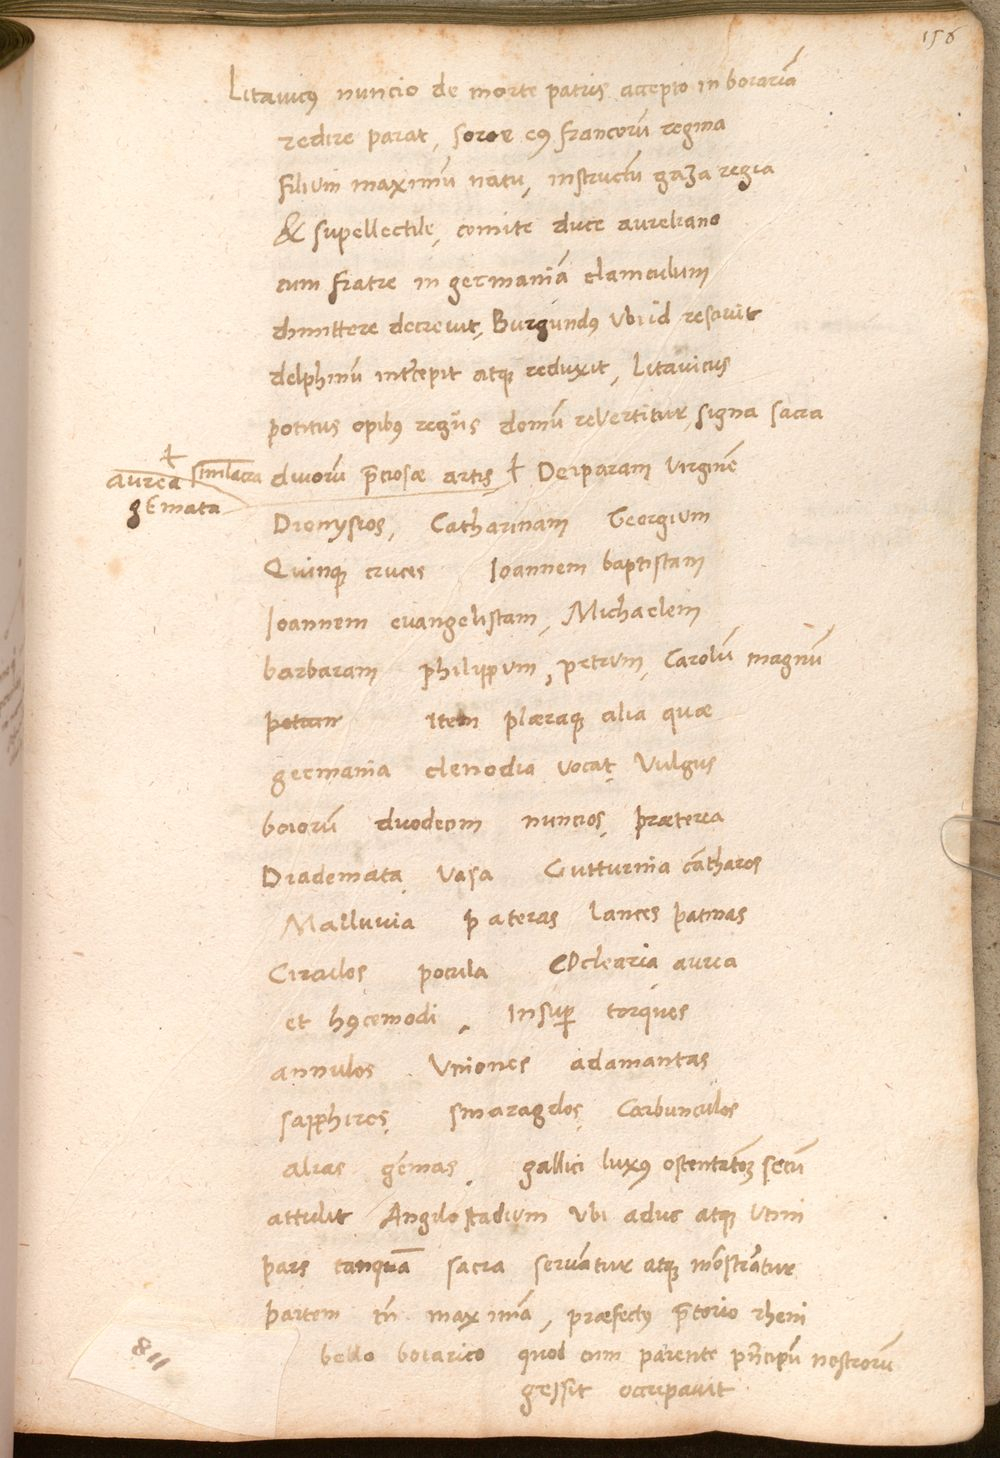 156
Litauicꝰ nuncio de morte patris accepto in boiariā
redire parat, soror eꝰ francorū regina
filium maximū natu, instructū gaza regia
& supellectile, comite duce aureliano
cum fratre in germaniā clamculum
dimittere decreuit, Burgundꝰ Vbi id resciuit
delphinū int'cepit atq; reduxit, Litauicus
potitus opibꝰ regiis domū reVertitur, signa sacra
duorū p̄ciosæ artis, ⸸ Deiparam Virginē
⸸
aurea simulacra
gEmata
Dionysios, Catharinam Georgium
Quinq; cruces Ioannem baptistam
Ioannem euangelistam, Michaelem
barbaram philippum, petrum, Carolū magnū
Item pleraq; alia quæ
germania clenodia vocat, Vulgus
boiorū duodecim nuncios, præterea
Diademata, vasa Gutturnia cātharos
Malluuia pateras lances patinas
Circulos pocula cOclearia aurea
et hꝰcemodi, Insup̄ torques
annulos Vniones adamantas
sapphiros, smaragdos, Carbunculos
alias gēmas, gallici luxꝰ ostentatōꝫ secū
attulit Angilostadium Vbi aduc atq; Vnni
pars tanquā sacra seruatur atq; mōstratur
partem tn̄ maximā, præfectꝰ p̄torio rheni
bello boiarico quod cum parente pn̄cipū nostrorū
gessit occupauit
118